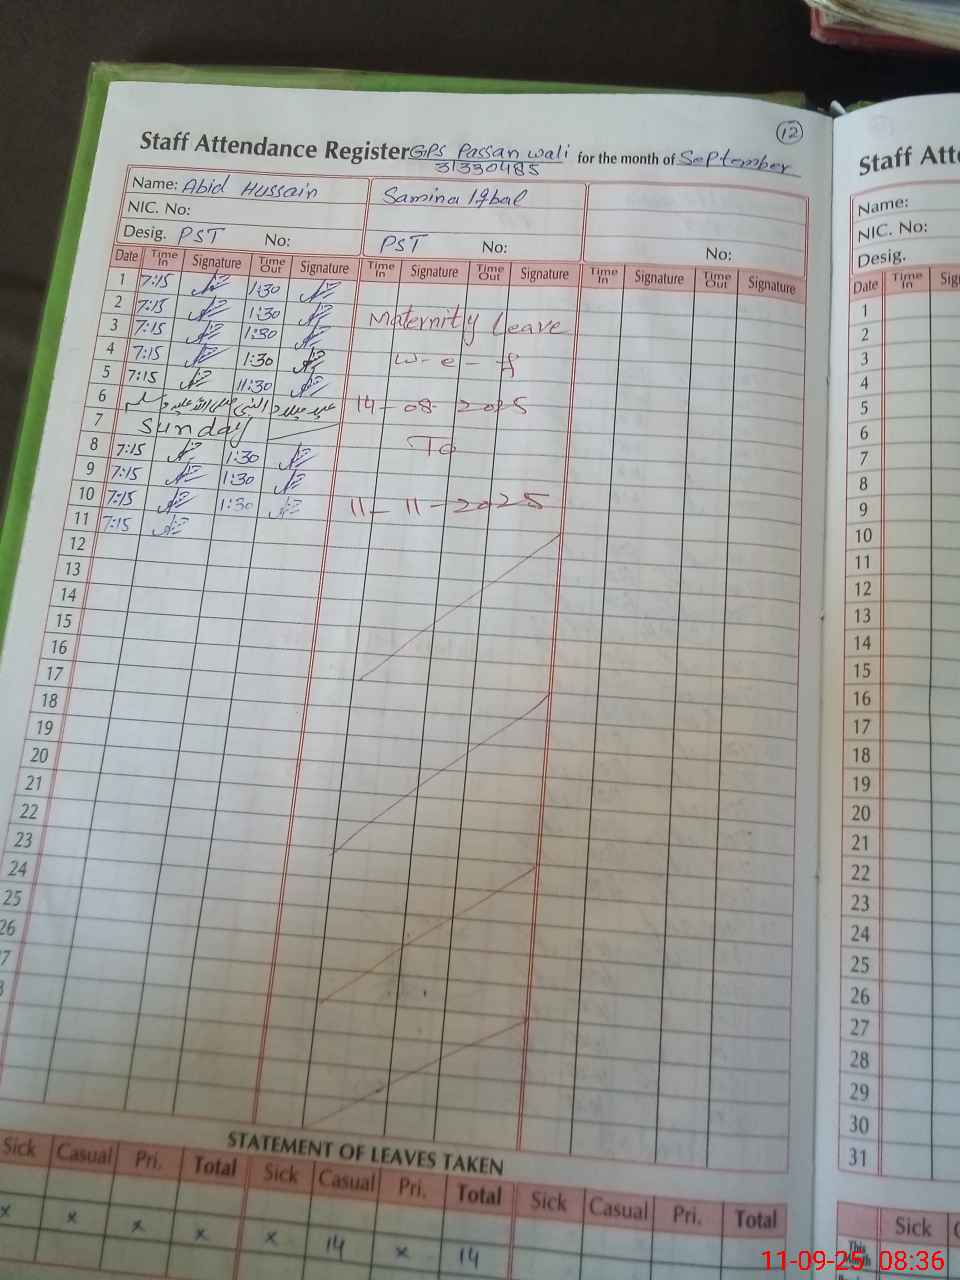 12
Staff Attendance Register GPS Passan wali for the month of September
31330485
Name: Abid Hussain Samina Iqbal
NIC. No:
Desig. PST No: PST No: No:
Date Time In Signature Time Out Signature Time In Signature Time Out Signature Time In Signature Time Out Signature
1 7:15 1:30
2 7:15 1:30 Maternity Leave
3 7:15 1:30
4 7:15 1:30 w-e-f
5 7:15 11:30
6 عید میلاد النبی صلی اللہ علیہ وسلم 14-08-2025
7 Sunday To
8 7:15 1:30
9 7:15 1:30
10 7:15 1:30 11-11-2025
11 7:15
12
13
14
15
16
17
18
19
20
21
22
23
24
25
26
7
8
STATEMENT OF LEAVES TAKEN
Sick Casual Pri. Total Sick Casual Pri. Total Sick Casual Pri. Total
x x x x x 14 x 14
Staff Att
Name:
NIC. No:
Desig.
Date Time In Sig
1
2
3
4
5
6
7
8
9
10
11
12
13
14
15
16
17
18
19
20
21
22
23
24
25
26
27
28
29
30
31
Sick C
This
11-09-25 08:36